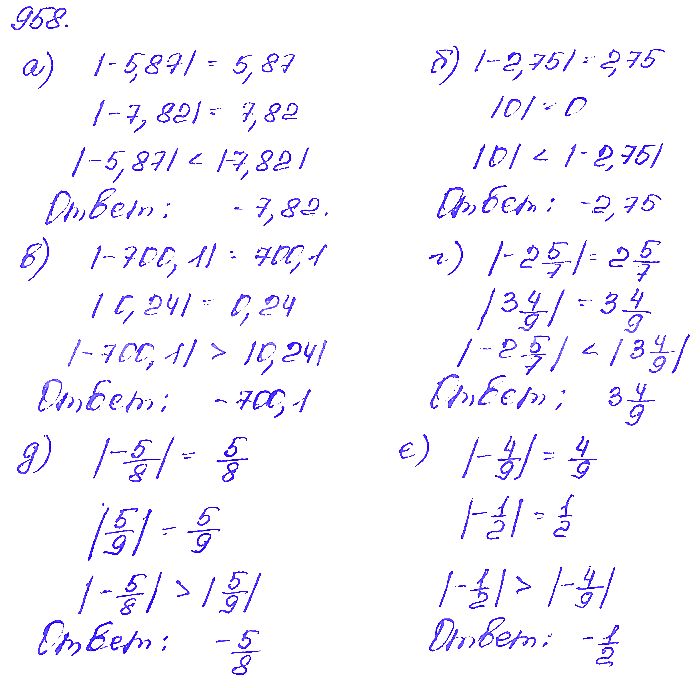 958.
а) |-5,87| = 5,87
|-7,82| = 7,82
|-5,87| < |-7,82|
Ответ: -7,82.
б) |-2,75| = 2,75
|0| = 0
|0| < |-2,75|
Ответ: -2,75
в) |-700,1| = 700,1
|0,24| = 0,24
|-700,1| > |0,24|
Ответ: -700,1
г) |-2 5/7| = 2 5/7
|3 4/9| = 3 4/9
|-2 5/7| < |3 4/9|
Ответ: 3 4/9
д) |-5/8| = 5/8
|5/9| = 5/9
|-5/8| > |5/9|
Ответ: -5/8
е) |-4/9| = 4/9
|-1/2| = 1/2
|-1/2| > |-4/9|
Ответ: -1/2